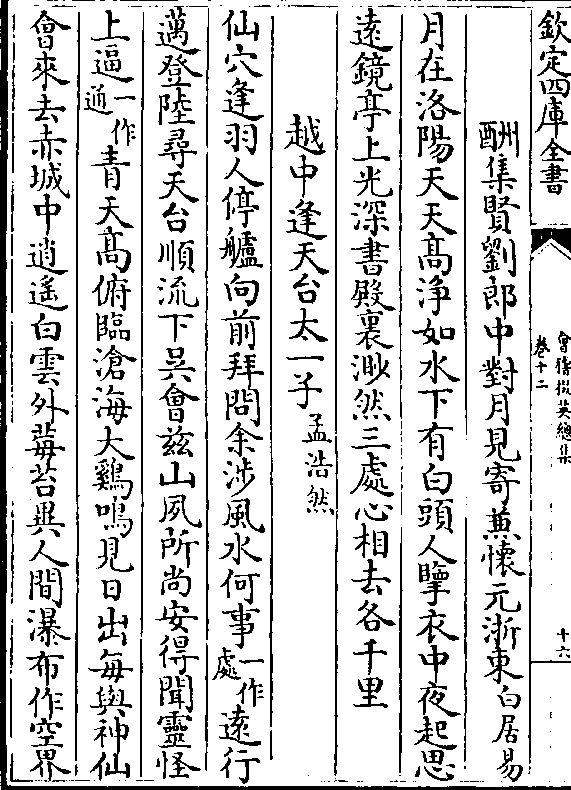 欽定四庫全書
會稽掇英總集
卷十二
十六
酬集賢劉郎中對月見寄兼懷元浙東白居易
月在洛陽天天髙淨如水下有白頭人擥衣中夜起思
遠鏡亭上光深書殿裏渺然三處心相去各千里
越中逢天台太一子孟浩然
仙穴逢羽人停艫向前拜問余涉風水何事一作處遠行
邁登陸尋天台順流下吳會兹山夙所尚安得聞靈怪
上逼一作逈青天髙俯臨滄海大鷄鳴見日出每與神仙
會來去赤城中逍遥白雲外莓苔異人間瀑布作空界